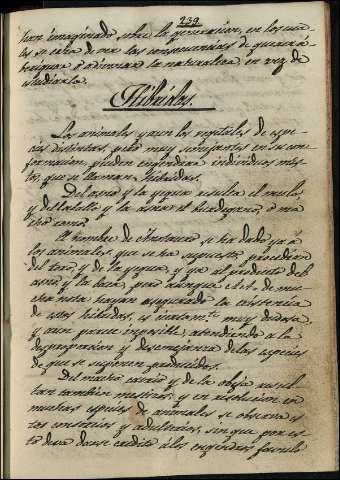 239
han imaginado sobre la generacion, en los cua-
les se echa de ver las consecuencias de querer a-
beriguar ó adivinar la naturaleza en vez de
estudiarla.
Hibridos.
Los animales y aun los vegetales de espe-
cies distintas, pero muy semejantes en su con-
formacion, pueden engendrar individuos mis-
tos, que se llaman Hibridos.
Del asno y la yegua resulta el mulo,
y del caballo y la asna el burdegano, ó ma-
cho romo.
El nombre de se ha dado ya á
los animales, que se ha supuesto procedian
del toro, y de la yegua, y ya al producto del
asno y la baca, pero aunque de mu-
cha nota hayan asegurado la existencia
de estos hibridos, es muy dudosa,
y aun parece imposible, atendiendo á la
desproporcion y desemejanza de las especies
de que se suponen producidos.
Del macho cabrio y de la obeja resul-
tan tambien mestizos, y en resolucion en
muchas especies de animales se observan es-
tos consorcios y adulterios, sin que por es-
to deva darse credito á los engendros fabulo-